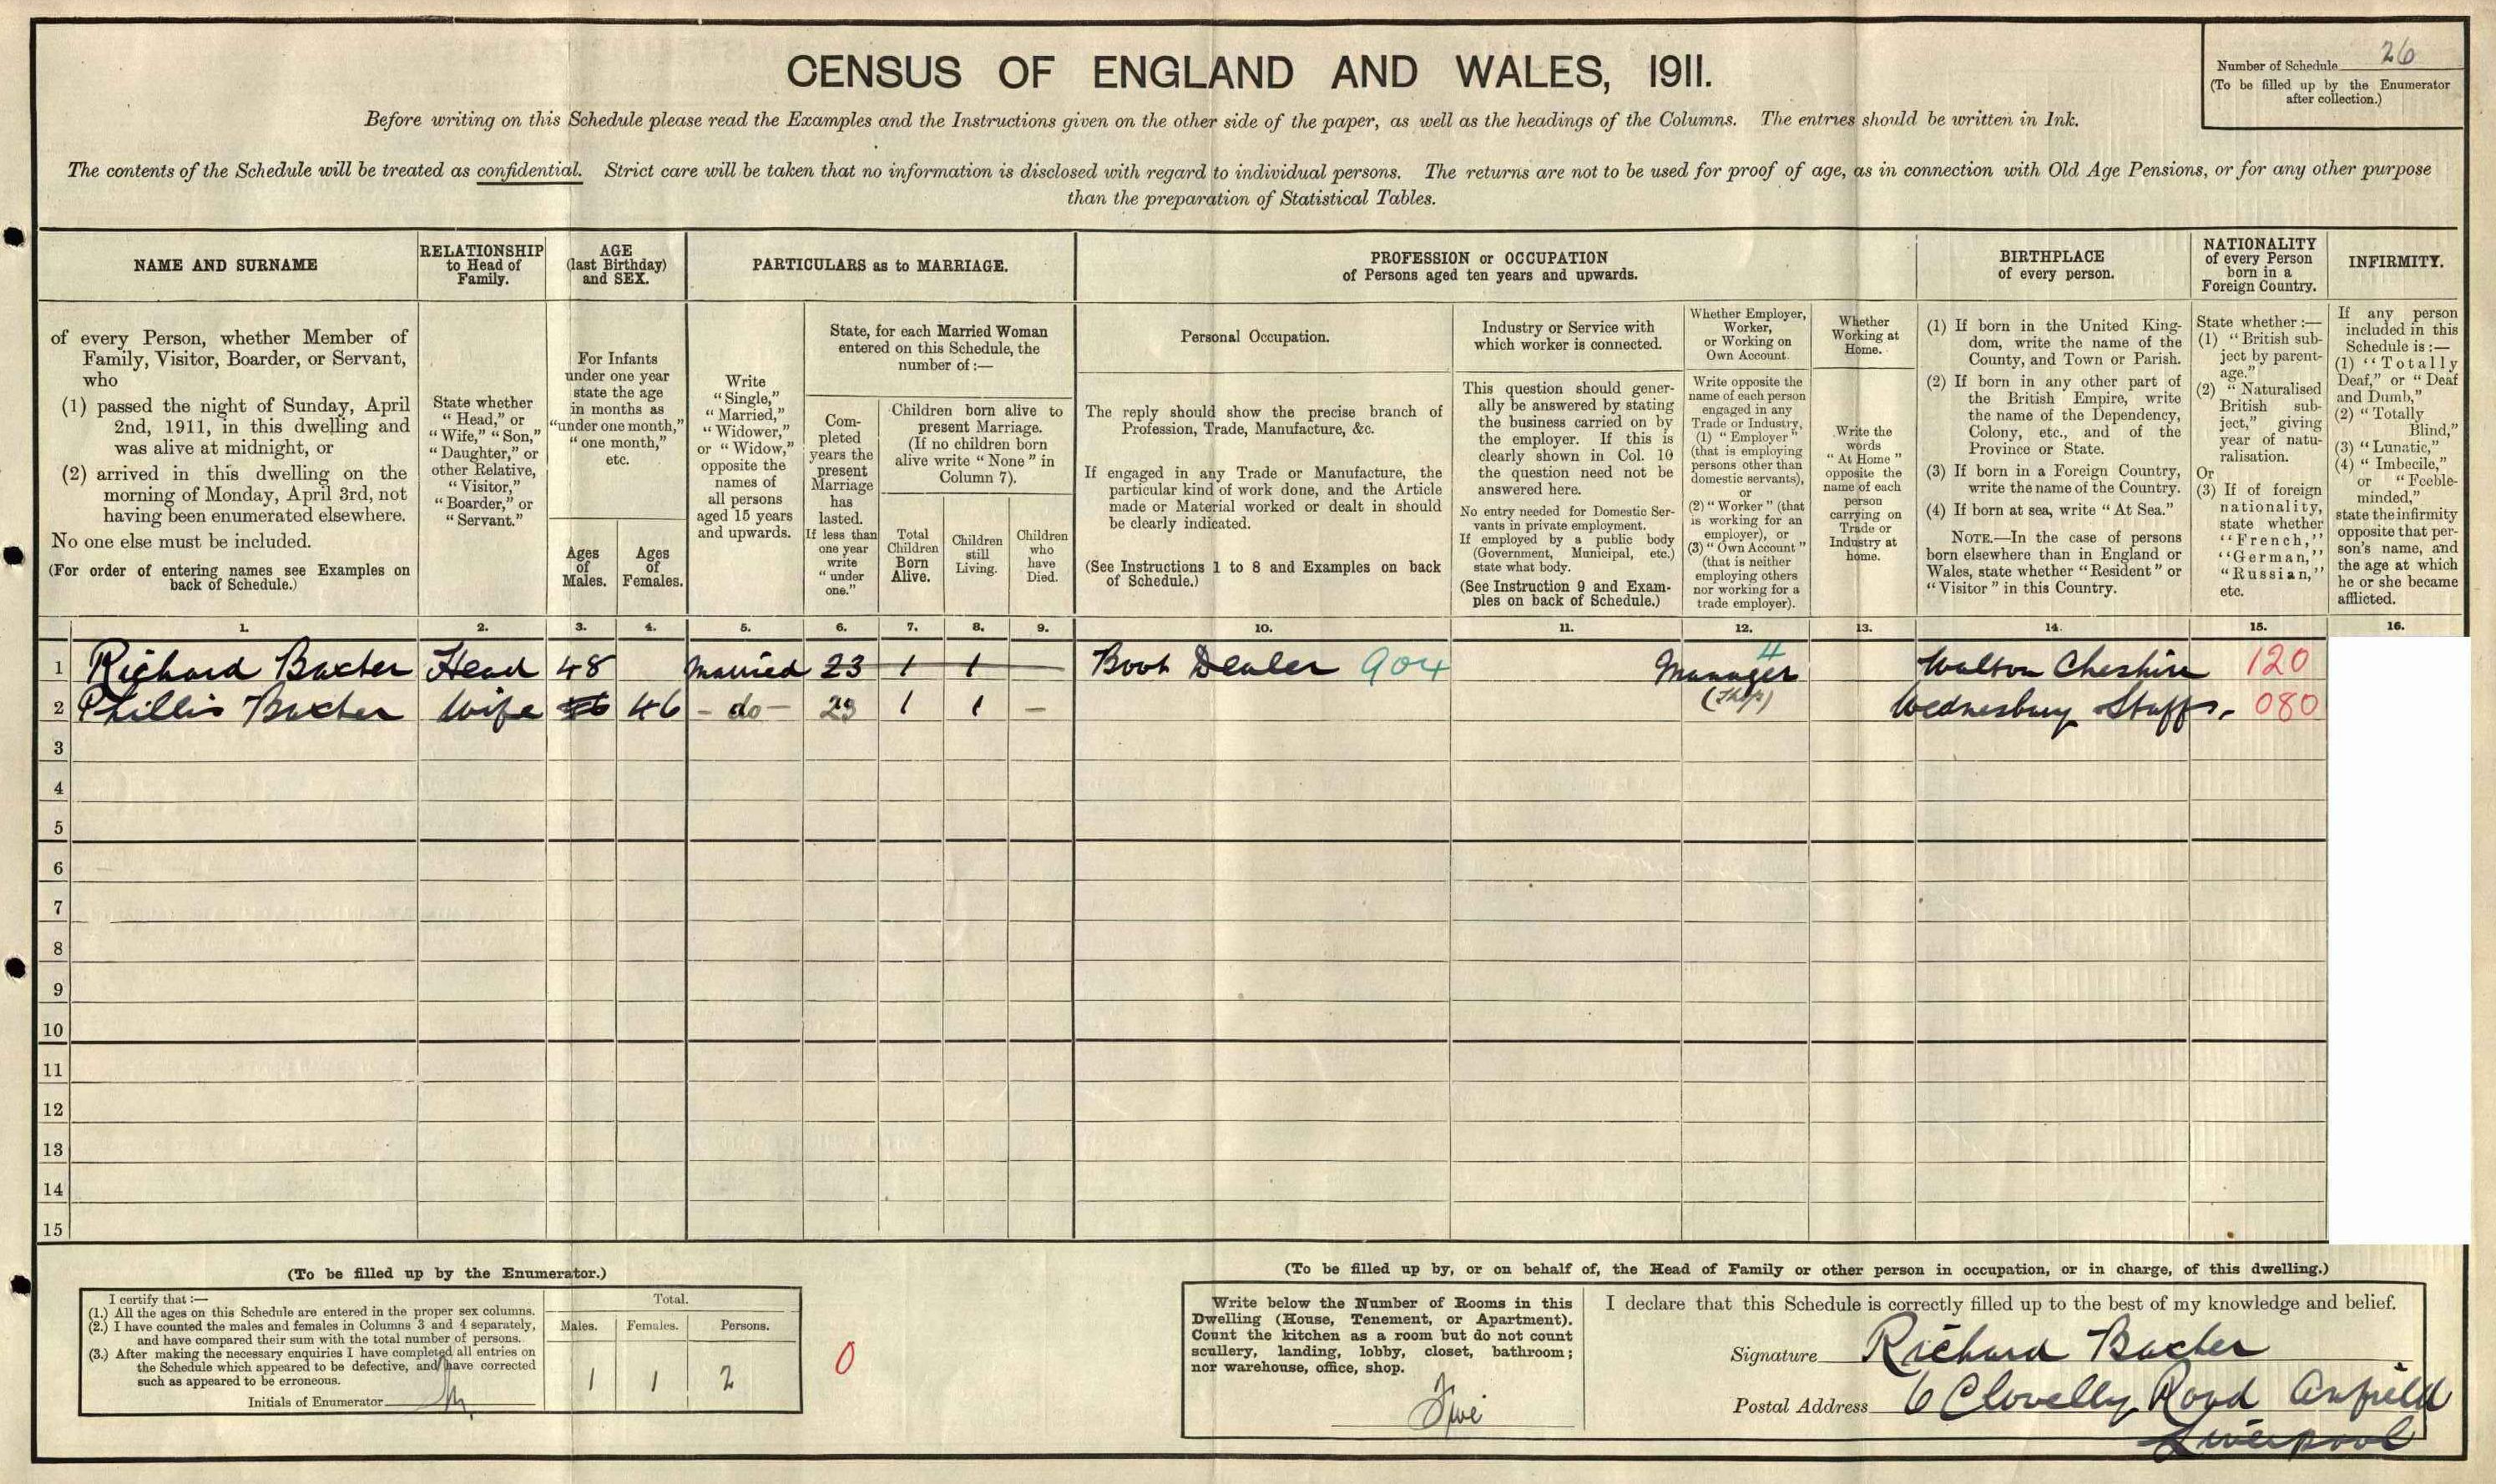 CENSUS OF ENGLAND AND WALES, 1911.
Number of Schedule 26
(To be filled up by the Enumerator
after collection.)
Before writing on this Schedule please read the Examples and the Instructions given on the other side of the paper, as well as the headings of the Columns. The entries should be written in Ink.
The contents of the Schedule will be treated as confidential. Strict care will be taken that no information is disclosed with regard to individual persons. The returns are not to be used for proof of age, as in connection with Old Age Pensions, or for any other purpose
than the preparation of Statistical Tables.
NAME AND SURNAME
of every Person, whether Member of
Family, Visitor, Boarder, or Servant,
who
(1) passed the night of Sunday, April
2nd, 1911, in this dwelling and
was alive at midnight, or
(2) arrived in this dwelling on the
morning of Monday, April 3rd, not
having been enumerated elsewhere.
No one else must be included.
(For order of entering names see Examples on
back of Schedule.)
RELATIONSHIP
to Head of
Family.
State whether
"Head," or
"Wife," "Son,"
"Daughter," or
other Relative,
"Visitor,"
"Boarder," or
"Servant."
AGE
(last Birthday)
and SEX.
For Infants
under one year
state the age
in months as
"under one month,"
"one month,"
etc.
Ages
of
Males.
Ages
of
Females.
PARTICULARS as to MARRIAGE.
Write
"Single,"
"Married,"
"Widower,"
or "Widow,"
opposite the
names of
all persons
aged 15 years
and upwards.
State, for each Married Woman
entered on this Schedule, the
number of:—
Com-
pleted
years the
present
Marriage
has
lasted.
If less than
one year
write
"under
one."
Children born alive to
present Marriage.
(If no children born
alive write "None" in
Column 7).
Total
Children
Born
Alive.
Children
still
Living.
Children
who
have
Died.
PROFESSION or OCCUPATION
of Persons aged ten years and upwards.
Personal Occupation.
The reply should show the precise branch of
Profession, Trade, Manufacture, &c.
If engaged in any Trade or Manufacture, the
particular kind of work done, and the Article
made or Material worked or dealt in should
be clearly indicated.
(See Instructions 1 to 8 and Examples on back
of Schedule.)
Industry or Service with
which worker is connected.
This question should gener-
ally be answered by stating
the business carried on by
the employer. If this is
clearly shown in Col. 10
the question need not be
answered here.
No entry needed for Domestic Ser-
vants in private employment.
If employed by a public body
(Government, Municipal, etc.)
state what body.
(See Instruction 9 and Exam-
ples on back of Schedule.)
Whether Employer,
Worker,
or Working on
Own Account.
Write opposite the
name of each person
engaged in any
Trade or Industry,
(1) "Employer"
(that is employing
persons other than
domestic servants),
or
(2) "Worker" (that
is working for an
employer), or
(3) "Own Account"
(that is neither
employing others
nor working for a
trade employer).
Whether
Working at
Home.
Write the
words
"At Home"
opposite the
name of each
person
carrying on
Trade or
Industry at
home.
BIRTHPLACE
of every person.
(1) If born in the United King-
dom, write the name of the
County, and Town or Parish.
(2) If born in any other part of
the British Empire, write
the name of the Dependency,
Colony, etc., and of the
Province or State.
(3) If born in a Foreign Country,
write the name of the Country.
(4) If born at sea, write "At Sea."
NOTE.—In the case of persons
born elsewhere than in England or
Wales, state whether "Resident" or
"Visitor" in this Country.
NATIONALITY
of every Person
born in a
Foreign Country.
State whether:—
(1) "British sub-
ject by parent-
age."
(2) "Naturalised
British sub-
ject," giving
year of natu-
ralisation.
Or
(3) If of foreign
nationality,
state whether
"French,"
"German,"
"Russian,"
etc.
INFIRMITY.
If any person
included in this
Schedule is:—
(1) "Totally
Deaf," or "Deaf
and Dumb,"
(2) "Totally
Blind,"
(3) "Lunatic,"
(4) "Imbecile,"
or "Feeble-
minded,"
state the infirmity
opposite that per-
son's name, and
the age at which
he or she became
afflicted.
1. 2. 3. 4. 5. 6. 7. 8. 9. 10. 11. 12. 13. 14. 15. 16.
1 Richard Baxter Head 48 Married 23 1 1 — Boot Dealer 904 Manager 4 Walton Cheshire 120
2 Phillis Baxter Wife 46 - do - 23 1 1 — (Shop) Wednesbury Staffs. 080
3
4
5
6
7
8
9
10
11
12
13
14
15
(To be filled up by the Enumerator.)
I certify that:—
(1.) All the ages on this Schedule are entered in the proper sex columns.
(2.) I have counted the males and females in Columns 3 and 4 separately,
and have compared their sum with the total number of persons.
(3.) After making the necessary enquiries I have completed all entries on
the Schedule which appeared to be defective, and have corrected
such as appeared to be erroneous.
Initials of Enumerator
Total.
Males. Females. Persons.
1 1 2
0
(To be filled up by, or on behalf of, the Head of Family or other person in occupation, or in charge, of this dwelling.)
Write below the Number of Rooms in this
Dwelling (House, Tenement, or Apartment).
Count the kitchen as a room but do not count
scullery, landing, lobby, closet, bathroom;
nor warehouse, office, shop.
Five
I declare that this Schedule is correctly filled up to the best of my knowledge and belief.
Signature Richard Baxter
Postal Address 6 Clovelly Road Anfield
Liverpool